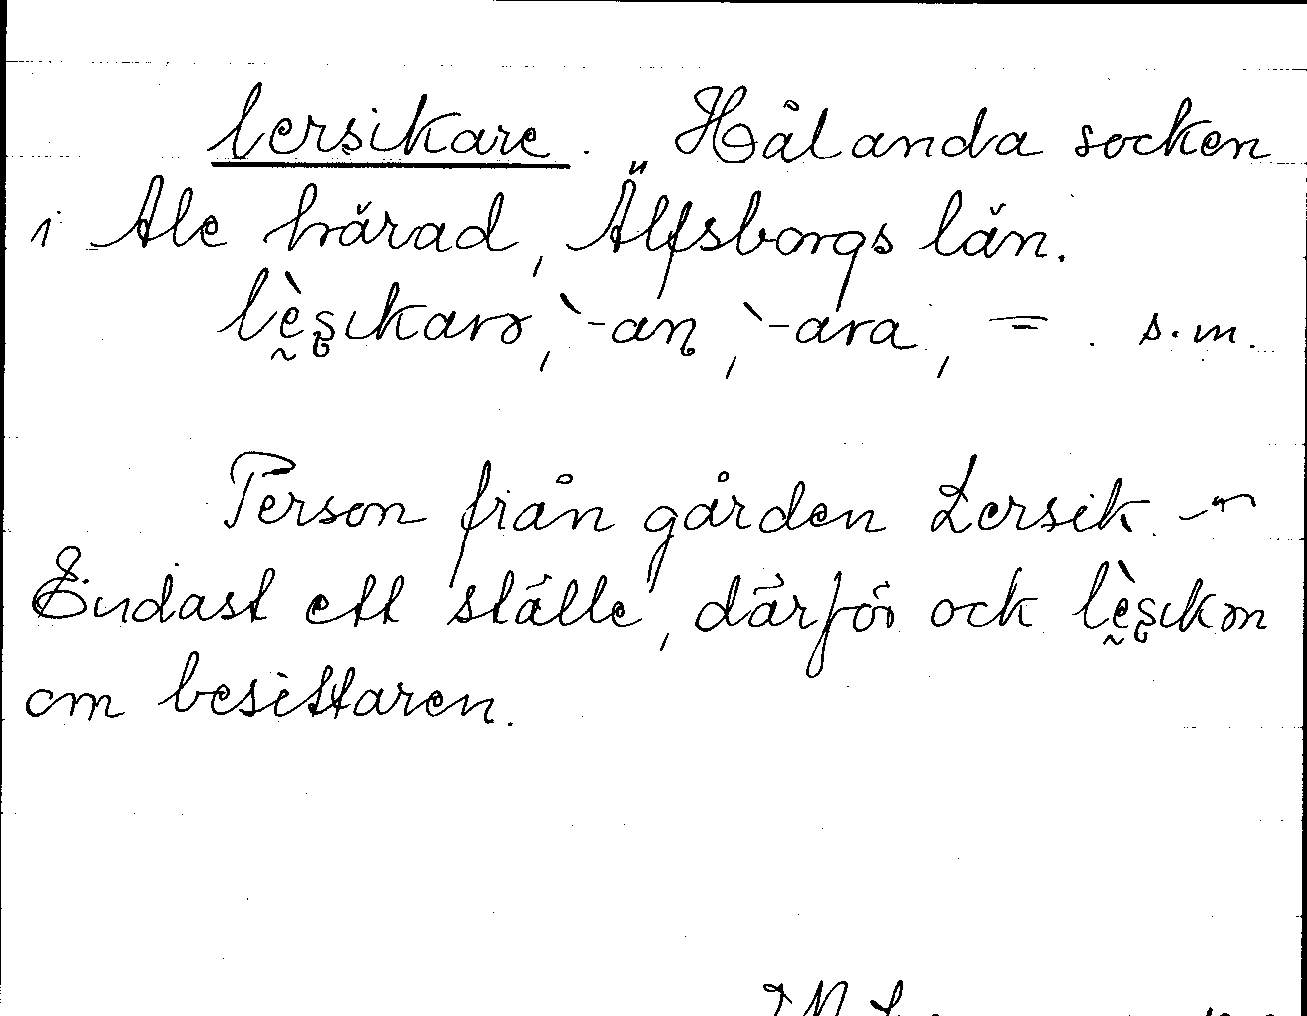 lersikare. Hålanda socken
i Ale härad, Älfsborgs län.
lèsıkarə, `-an, `-ara, =. s.m.
Person från gården Lersik. —
Endast ett ställe, därför ock lèsıkən
om besittaren.